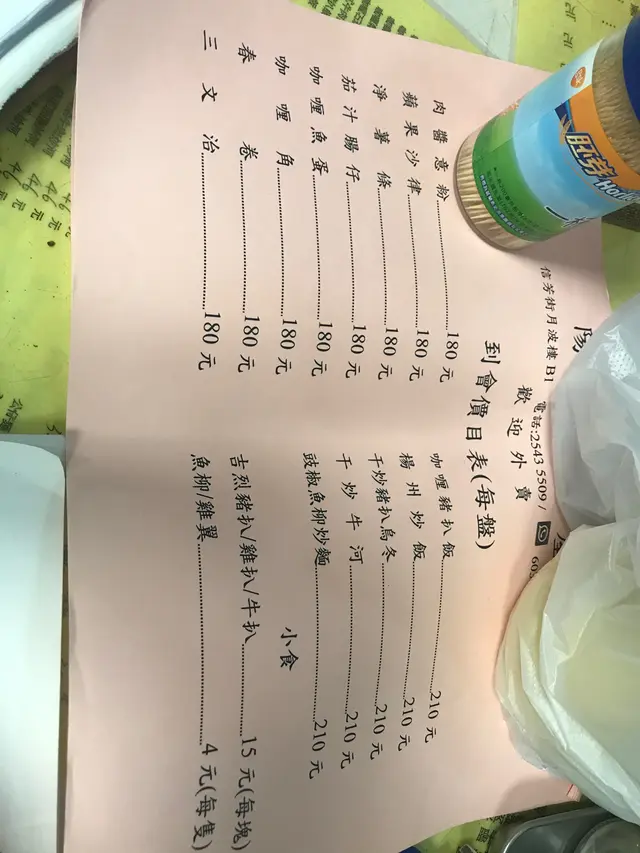 陽
信芳街月波樓 B1 電話:2543 5509 /
歡迎外賣
到會價目表(每盤)
肉醬意粉 180 元
蘋果沙律 180 元
淨薯條 180 元
茄汁腸仔 180 元
咖喱魚蛋 180 元
咖喱角 180 元
春卷 180 元
三文治 180 元
咖喱豬扒飯 210 元
楊州炒飯 210 元
干炒豬扒烏冬 210 元
干炒牛河 210 元
豉椒魚柳炒麵 210 元
小食
吉烈豬扒/雞扒/牛扒 15 元(每塊)
魚柳/雞翼 4 元(每隻)